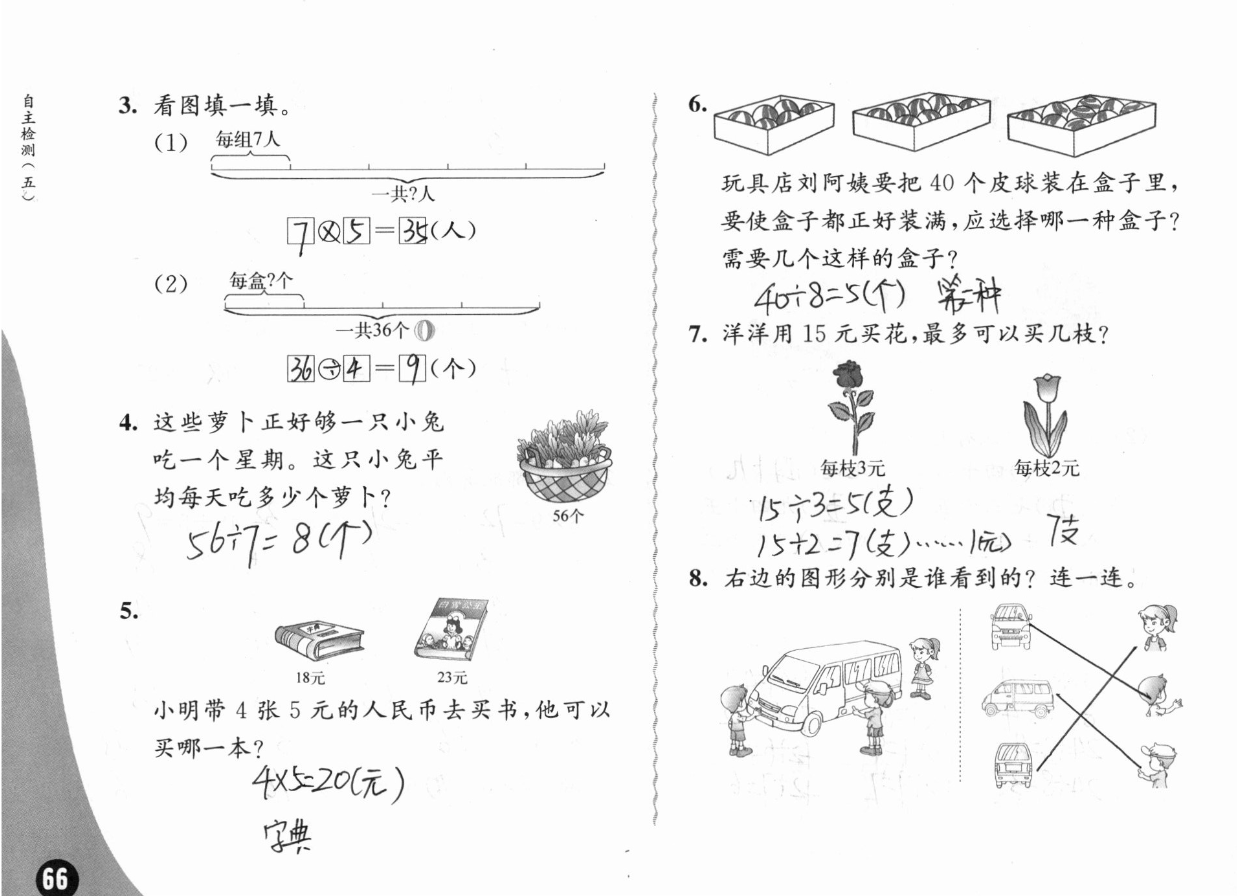 自主检测(五)
3. 看图填一填。
(1) 每组7人
一共?人
7×5=35(人)
(2) 每盒?个
一共36个
36÷4=9(个)
4. 这些萝卜正好够一只小兔
吃一个星期。这只小兔平
均每天吃多少个萝卜?
56个
56÷7=8(个)
5.
字典
18元
23元
小明带 4 张 5 元的人民币去买书,他可以
买哪一本?
4×5=20(元)
字典
66
6.
玩具店刘阿姨要把 40 个皮球装在盒子里,
要使盒子都正好装满,应选择哪一种盒子?
需要几个这样的盒子?
40÷8=5(个) 第二种
7. 洋洋用 15 元买花,最多可以买几枝?
每枝3元
每枝2元
15÷3=5(支)
15÷2=7(支)……1(元) 7支
8. 右边的图形分别是谁看到的? 连一连。